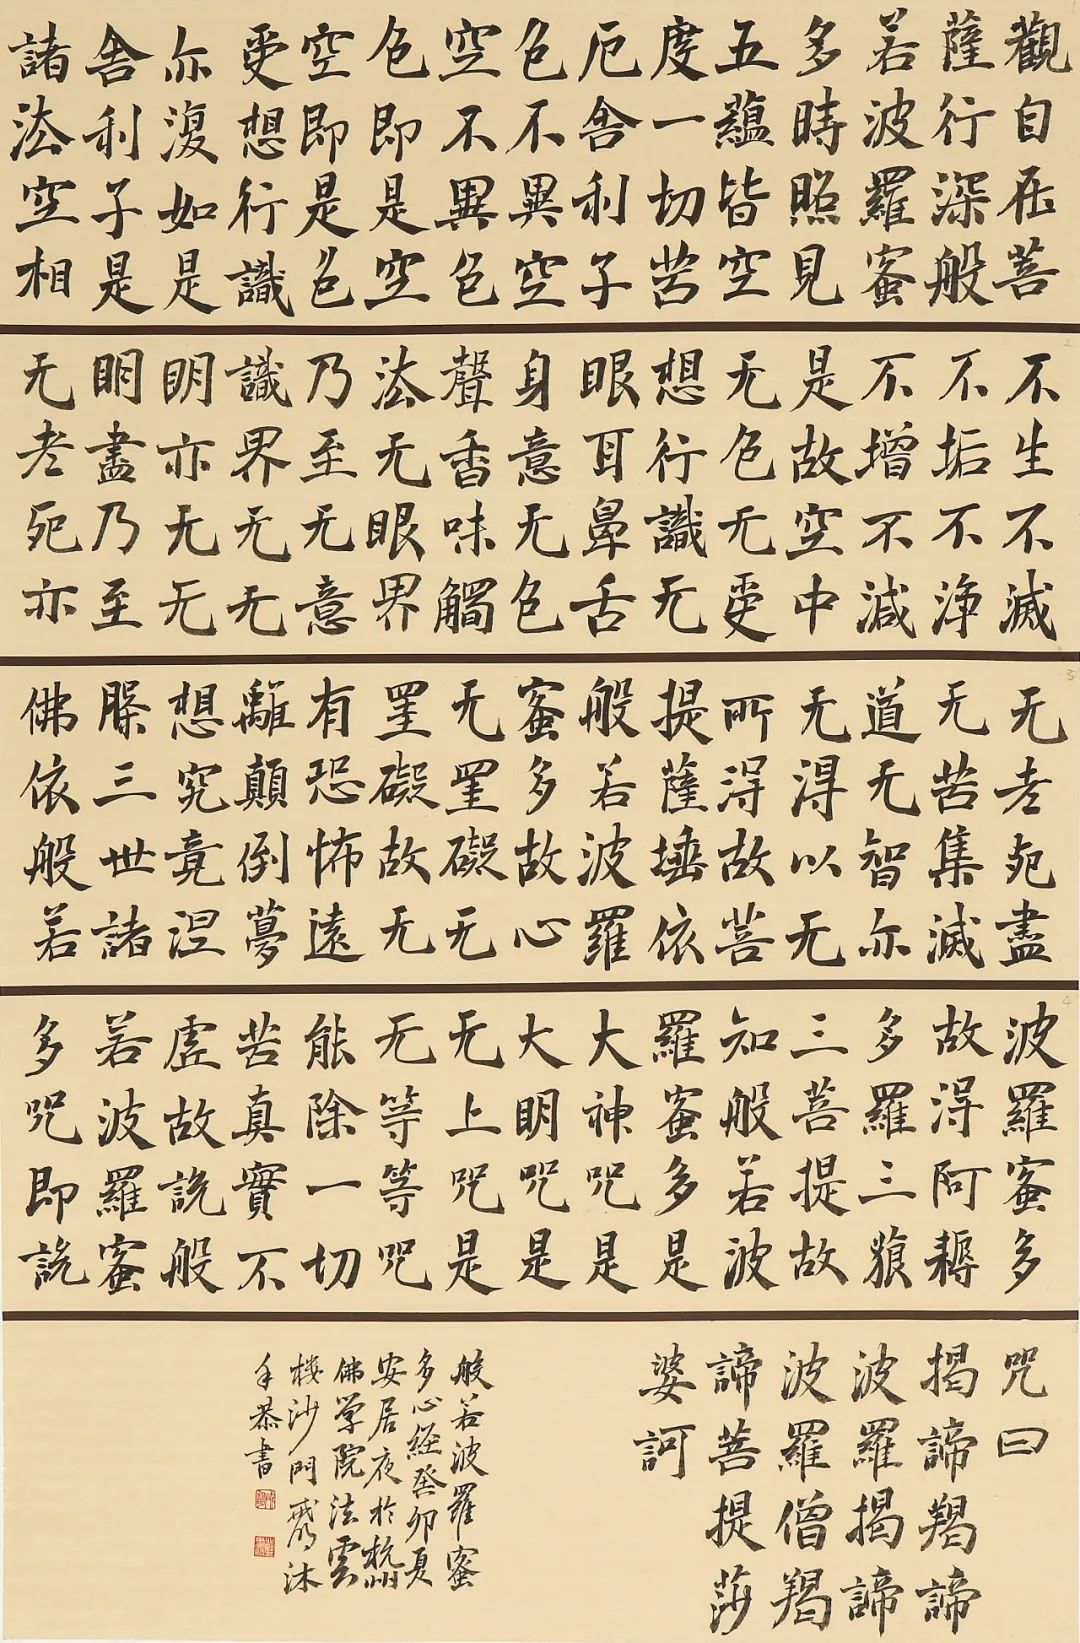 觀自在菩
薩行深般
若波羅蜜
多時照見
五蘊皆空
度一切苦
厄舍利子
色不異空
空不異色
色即是空
空即是色
受想行識
亦復如是
舍利子是
諸法空相
2
不生不滅
不垢不淨
不增不減
是故空中
无色无受
想行識无
眼耳鼻舌
身意无色
聲香味觸
法无眼界
乃至无意
識界无无
明亦无无
明盡乃至
无老死亦
3
无老死盡
无苦集滅
道无智亦
无得以无
所得故菩
提薩埵依
般若波羅
蜜多故心
无罣礙无
罣礙故无
有恐怖遠
離顛倒夢
想究竟涅
槃三世諸
佛依般若
4
波羅蜜多
故得阿耨
多羅三藐
三菩提故
知般若波
羅蜜多是
大神咒是
大明咒是
无上咒是
无等等咒
能除一切
苦真實不
虛故說般
若波羅蜜
多咒即說
咒曰
揭諦羯諦
波羅揭諦
波羅僧羯
諦菩提莎
婆訶
般若波羅蜜
多心經癸卯夏
安居夜於杭州
佛學院法雲
樓沙門戒沐
手恭書